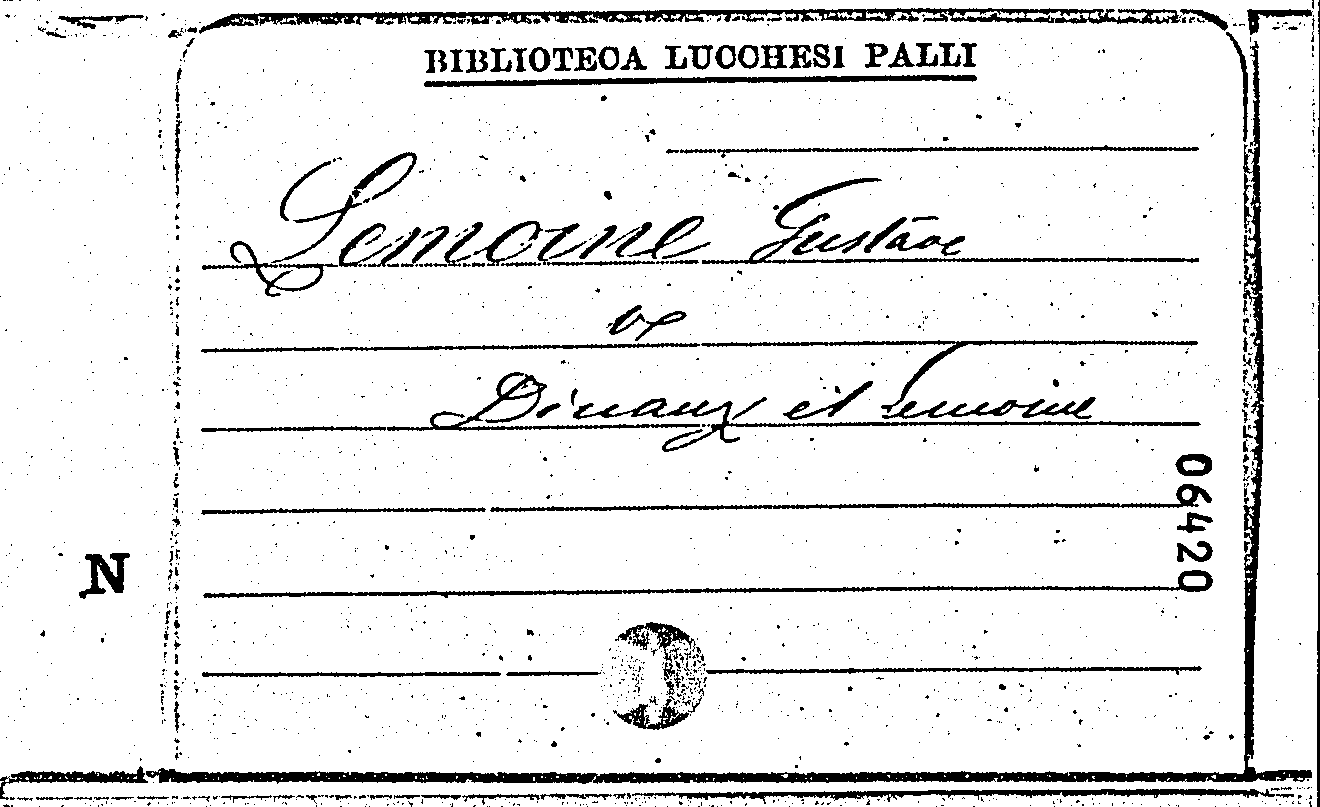 BIBLIOTECA LUCCHESI PALLI
Lemoine Gustave
v
Dinaux et Lemoine
06420
N